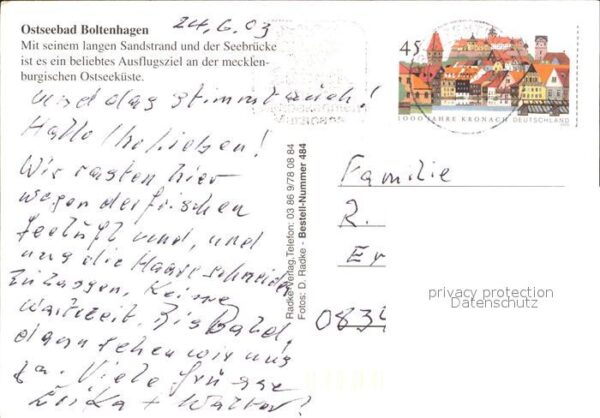 Ostseebad Boltenhagen
24.6.03
Mit seinem langen Sandstrand und der Seebrücke
ist es ein beliebtes Ausflugsziel an der mecklen-
burgischen Ostseeküste.
und das stimmt auch!
Hallo Ihr Lieben!
Wir rasten hier
wegen der frischen
Seeluft und, und
uns die Haare schneiden
zu lassen, Keine
Wartezeit. Bis Bald,
dann sehen wir uns
ja. Viele Grüsse
Erika + Walter!
Radke-Verlag, Telefon: 03 86 9/78 08 84
Fotos: D. Radke - Bestell-Nummer 484
45
1000 JAHRE KRONACH DEUTSCHLAND
Familie
R.
Er
0834
privacy protection
Datenschutz